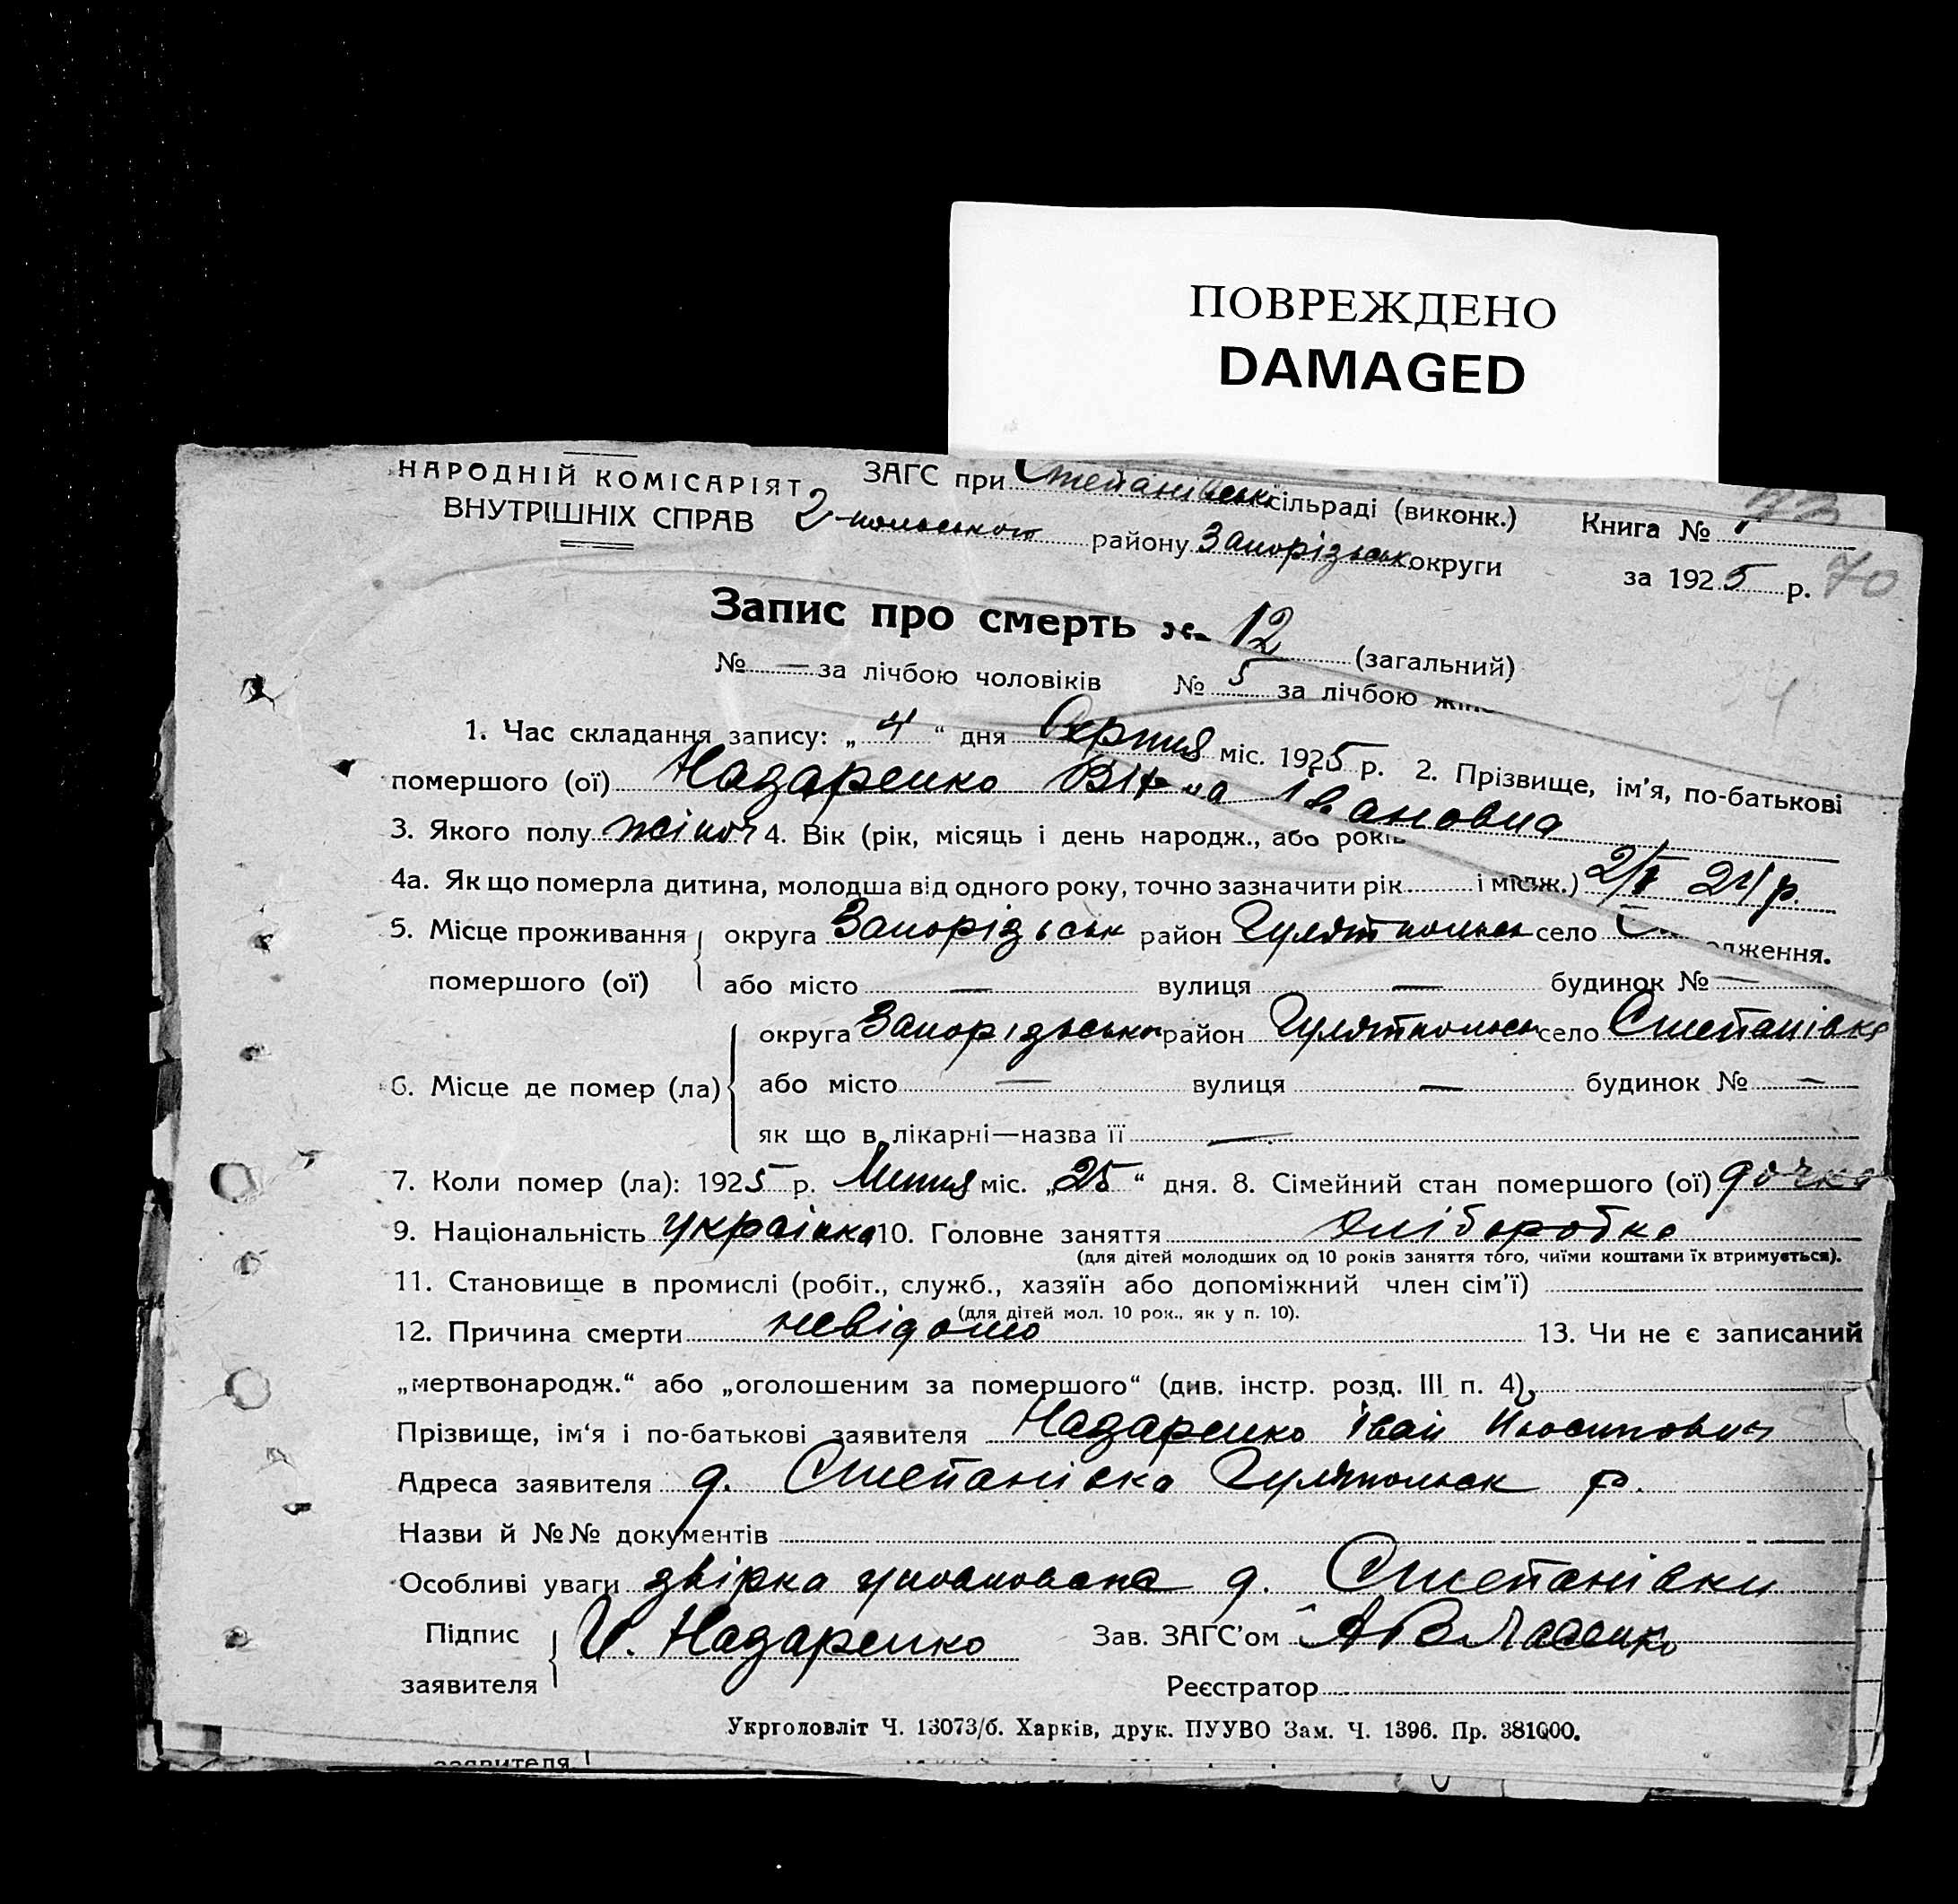 ПОВРЕЖДЕНО
DAMAGED
НАРОДНІЙ КОМІСАРІЯТ ЗАГС при Степанівськ сільраді (виконк.) Книга №
ВНУТРІШНІХ СПРАВ району Запорізськ округи за 1925 р. 70
Запис про смерть № 12 (загальний)
№ — за лічбою чоловіків № 5 за лічбою
1. Час складання запису: „4“ дня Серпня міс. 1925 р. 2. Прізвище, ім'я, по-батькові
помершого (ої) Назаренко Івановна
3. Якого полу жіноч 4. Вік (рік, місяць і день народж., або років 24 р.
4а. Як що померла дитина, молодша від одного року, точно зазначити рік і дження.
5. Місце проживання округа Запорізьськ район село
помершого (ої) або місто — вулиця — будинок № —
округа Запорізьськ район село Степанівка
6. Місце де помер (ла) або місто — вулиця — будинок № —
як що в лікарні—назва її —
7. Коли помер (ла): 1925 р. Липня міс. „25“ дня. 8. Сімейний стан помершого (ої) дочка
9. Національність українка 10. Головне заняття хліборобка
(для дітей молодших од 10 років заняття того, чиїми коштами їх втримується).
11. Становище в промислі (робіт., служб., хазяїн або допоміжний член сім'ї)
(для дітей мол. 10 рок., як у п. 10).
12. Причина смерти невідомо 13. Чи не є записаний
„мертвонародж.“ або „оголошеним за помершого“ (див. інстр. розд. III п. 4),
Прізвище, ім'я і по-батькові заявителя Назаренко Іван Йосипович
Адреса заявителя д. Степанівка р.
Назви й №№ документів
Особливі уваги звірка д. Степанівки
Підпис И. Назаренко Зав. ЗАГС'ом А Власенко
заявителя Реєстратор
Укрголовліт Ч. 13073/б. Харків, друк. ПУУВО Зам. Ч. 1396. Пр. 381000.
заявителя